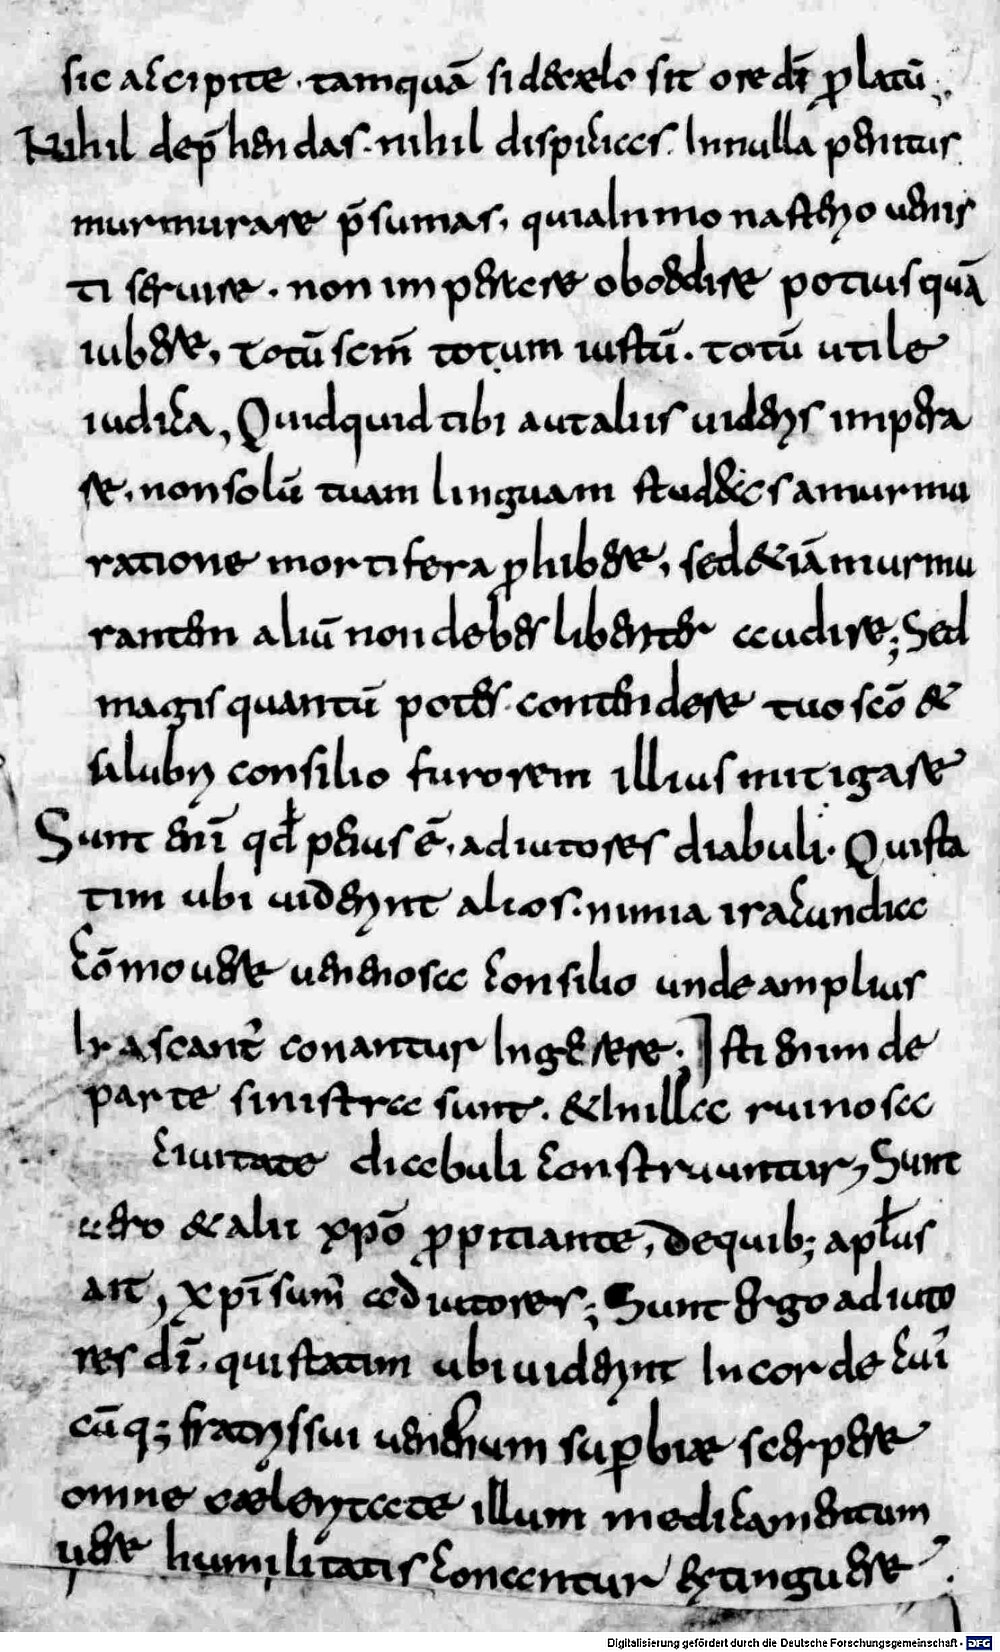 sic accipite · tamquā si de cælo sit ore dī ꝓlatū ;
Nihil dep̄hendas · nihil dispicias · In nulla penitus
murmurare p̄sumas, quia in monasterio uenis
ti seruire · non imperare oboedire potius quā
iubere, totū scm̄ totum iustū · totū utile
iudica, Quidquid tibi aut aliis uideris impera
re, non solū tuam linguam studeas a murmu
ratione mortifera ꝓhibere, sed &iā murmu
rantem aliū non debes libenter audire; Sed
magis quantū potes · contendere tuo scō &
salubri consilio furorem illius mitigare
Sunt enī qđ peius ē, adiutores diabuli · Qui sta
tim ubi uiderint alios · nimia iracundia
cōmouere uenenosa consilio unde amplius
Irascant᷑ conantur Ingerere · Isti enim de
parte sinistra sunt · & In illa ruinosa
ciuitate diabuli construuntur, Sunt
uero & alii xp̄o ꝓpitiante, de quib; apl̄us
ait, xp̄i sum᷑ adiutores; Sunt ergo adiuto
res dī · qui statim ubi uiderint In corde cui᷑
cūq; fratris sui uenenum suꝑbiæ serpere
omne celeritate illum medicamentum
uere humilitatis conentur extinguere
Digitalisierung gefördert durch die Deutsche Forschungsgemeinschaft - DFG